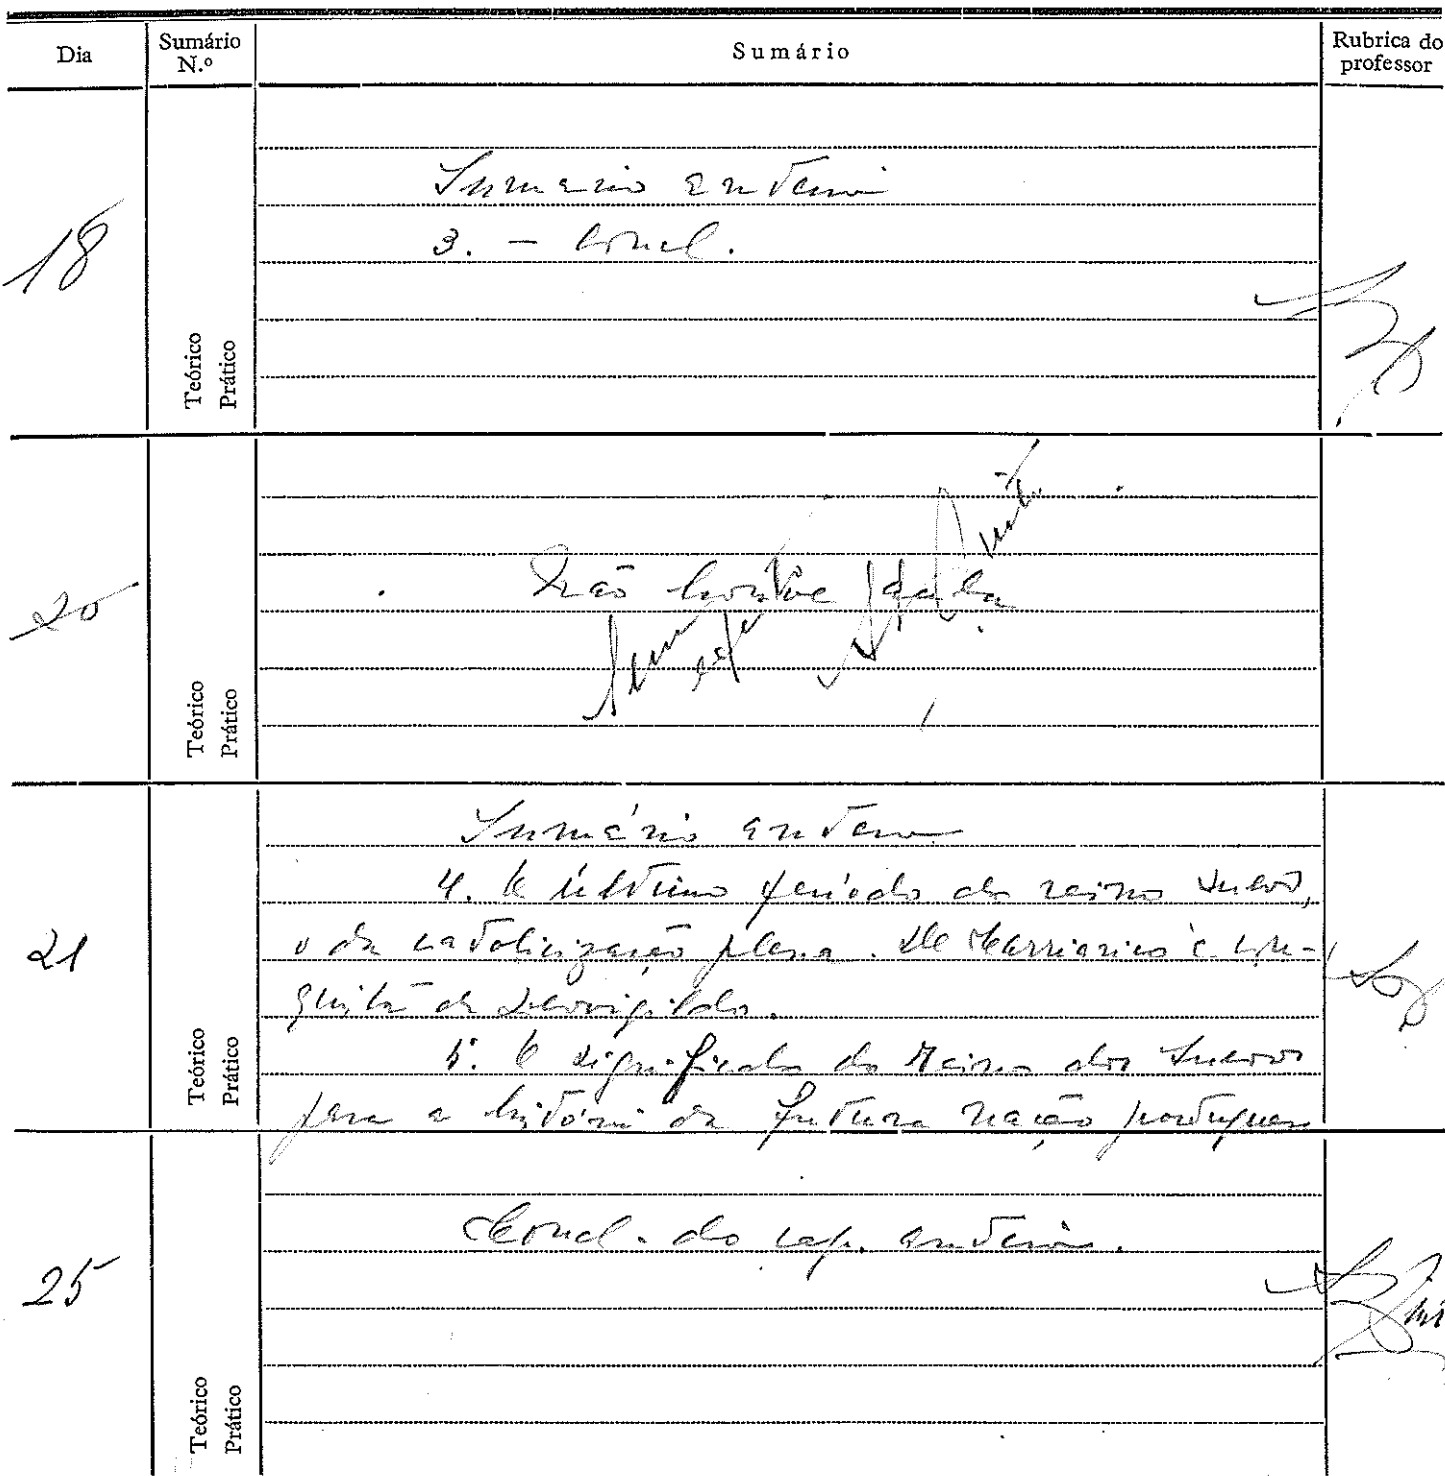 Dia
Sumário N.º
Sumário
Rubrica do professor
18
Teórico
Prático
Sumário anterior
3. – Concl.
20
Teórico
Prático
Não houve
21
Teórico
Prático
Sumário anterior
4. O último período do reino suevo,
o da catolicização plena. De Charriarico à con-
quista de Leovigildo.
5. O significado do Reino dos Suevos
para a história da futura nação portuguesa
25
Teórico
Prático
Concl. do cap. anterior.